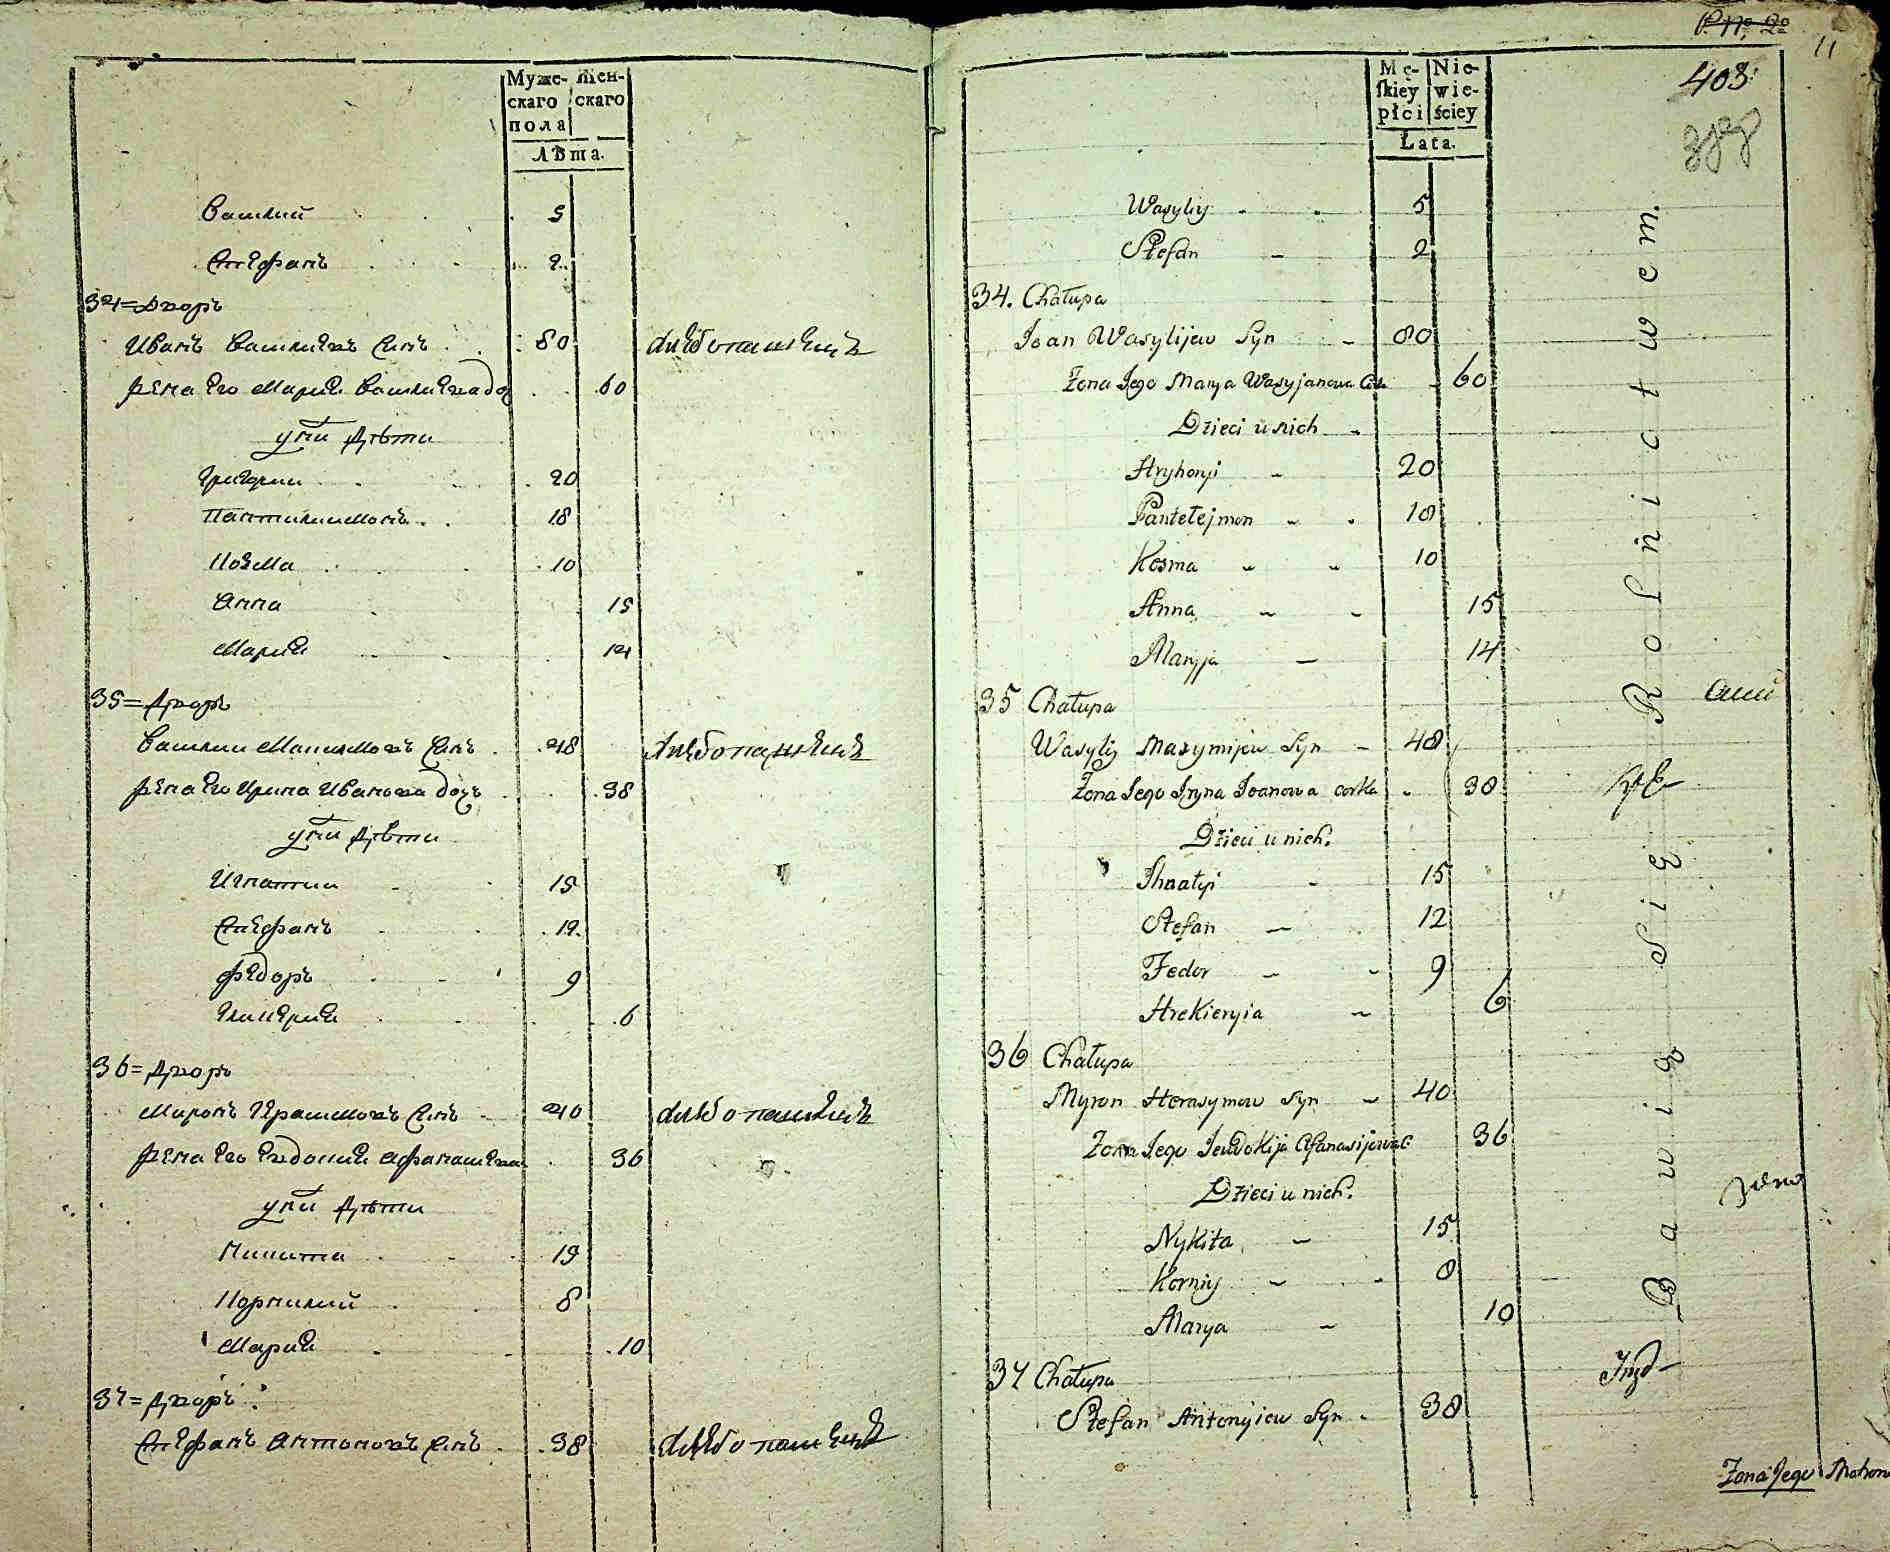 Муже-
скаго
пола
Жен-
скаго
Лѣта.
Василий 5
Стефанъ 2
34 = Дворъ
Иванъ Василиевъ Синъ 80 хлѣбопашецъ
Жена Его Мария Василиева доч 60
у ни Дѣти
Григорий 20
Пантилимонъ 18
Козма 10
Анна 15
Мария 14
35 = Дворъ
Василий Максимовъ Синъ 48 хлѣбопашецъ
Жена Его Ирина Иванова доч 38
у ни Дѣти
Игнатий 15
Стефанъ 12
Федоръ 9
Гликерия 6
36 = Дворъ
Миронъ Герасимовъ Синъ 40 хлѣбопашецъ
Жена Его Евдокия Афанасиева 36
у ни Дѣти
Никита 15
Корнилий 8
Мария 10
37 = Дворъ
Стефанъ Антоновъ Синъ 38 хлѣбопашецъ
11
408
Mę-
ſkiey
płci
Nie-
wie-
ściey
Lata.
Wasyliy 5
Stefan 2
34. Chałupa
Joan Wasylijew Syn 80
Żona Jego Marya Wasyjanowa 60
Dzieci u nich
Hryhoryi 20
Pantełejmon 18
Kosma 10
Anna 15
Maryja 14
35 Chałupa
Wasyliy Maxymijew Syn 48
Żona Jego Iryna Joanowa corka 38
Dzieci u nich.
Ihnatyi 15
Stefan 12
Fedor 9
Hrekieryia 6
36 Chałupa
Myron Herasymow Syn 40
Żona Jego Jewdokija Afanasijewa C 36
Dzieci u nich.
Nykita 15
Korniy 8
Marya 10
37 Chałupa
Stefan Antonyiew Syn 38
Bawią Się Rolnictwem.
Żona Jego